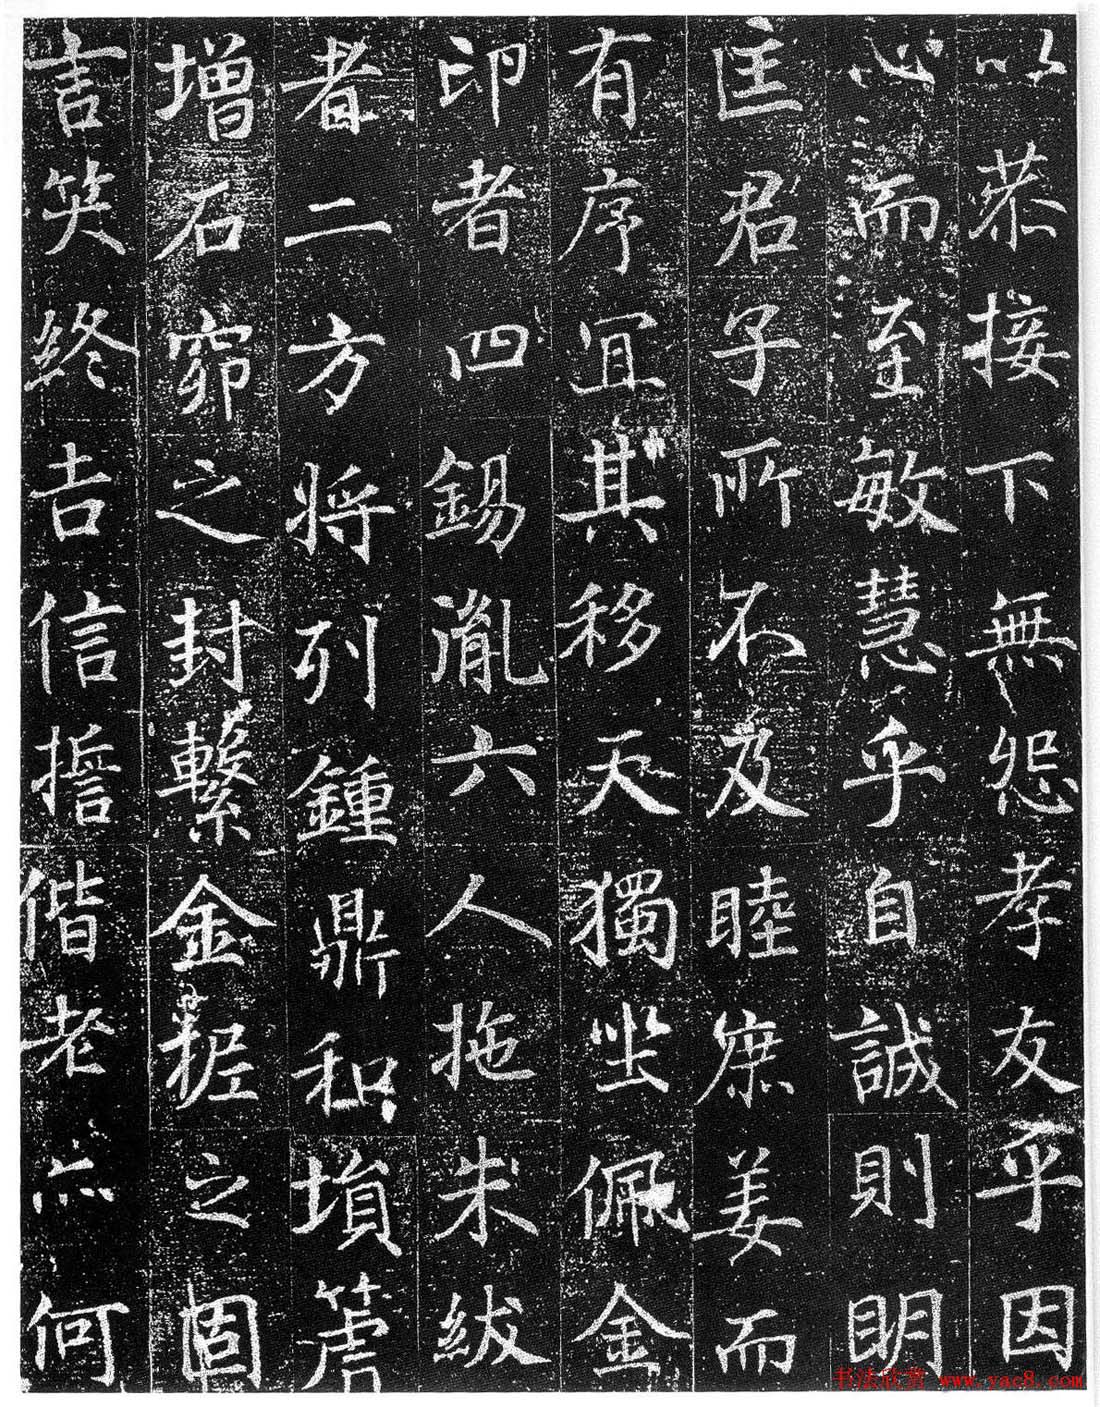 以恭接下無怨孝友乎因
心而至敏慧乎自誠則明
匡君子所不及睦庶姜而
有序宜其移天獨坐佩金
印者四錫胤六人拖朱紱
者二方將列鍾鼎和塤篪
增石窌之封繫金柅之固
言笑終吉信誓偕老亦何
书法欣赏 www.yac8.com